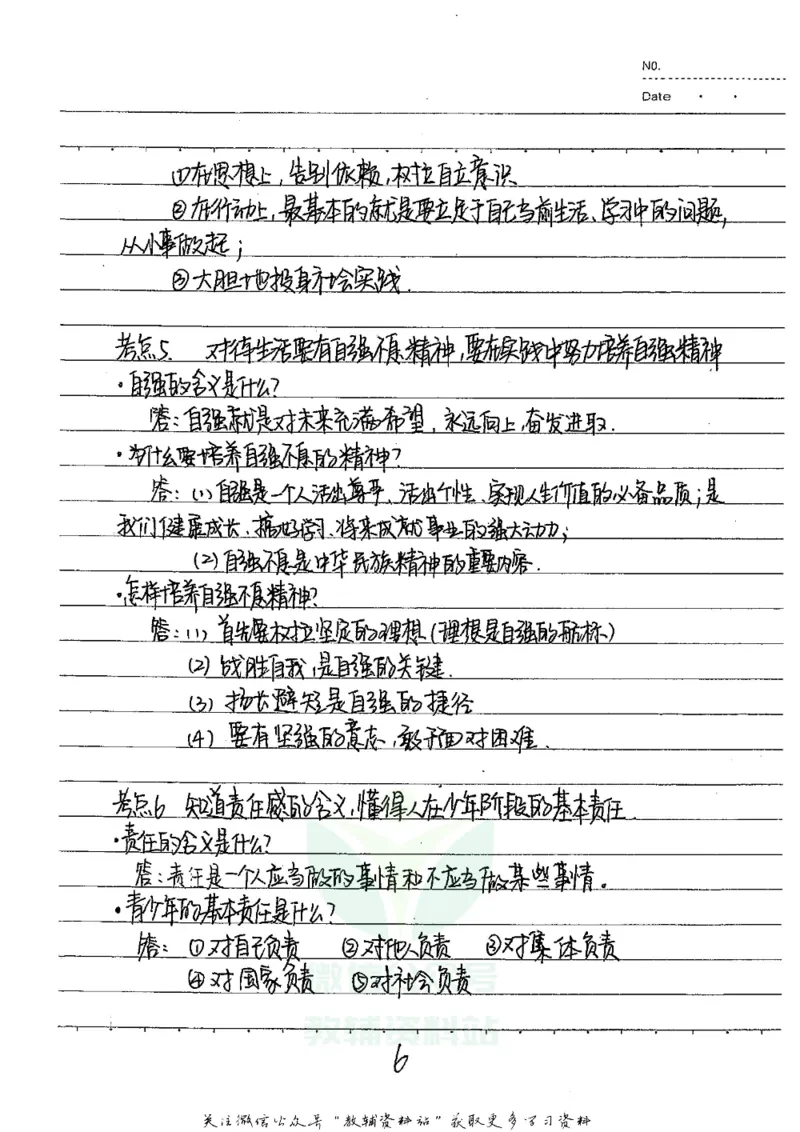 NO.
Date
①在思想上，告别依赖，树立自立意识
②在行动上，最基本的就是要立足于自己当前生活、学习中的问题，
从小事做起；
③大胆地投身社会实践.
考点5. 对待生活要有自强不息精神，要在实践中努力培养自强精神
·自强的含义是什么？
答：自强就是对未来充满希望，永远向上，奋发进取.
·为什么要培养自强不息的精神？
答：(1)自强是一个人活出尊严、活出个性、实现人生价值的必备品质；是
我们健康成长、搞好学习、将来成就事业的强大动力；
(2)自强不息是中华民族精神的重要内容.
·怎样培养自强不息精神？
答：(1) 首先要树立坚定的理想(理想是自强的航标)
(2) 战胜自我，是自强的关键.
(3) 扬长避短是自强的捷径
(4) 要有坚强的意志，敢于面对困难.
考点6 知道责任感的含义，懂得人在少年阶段的基本责任.
·责任的含义是什么？
答：责任是一个人应当做的事情和不应当做某些事情。
·青少年的基本责任是什么？
答：①对自己负责 ②对他人负责 ③对集体负责
④对国家负责 ⑤对社会负责
教辅资料站
6
关注微信公众号"教辅资料站"获取更多学习资料